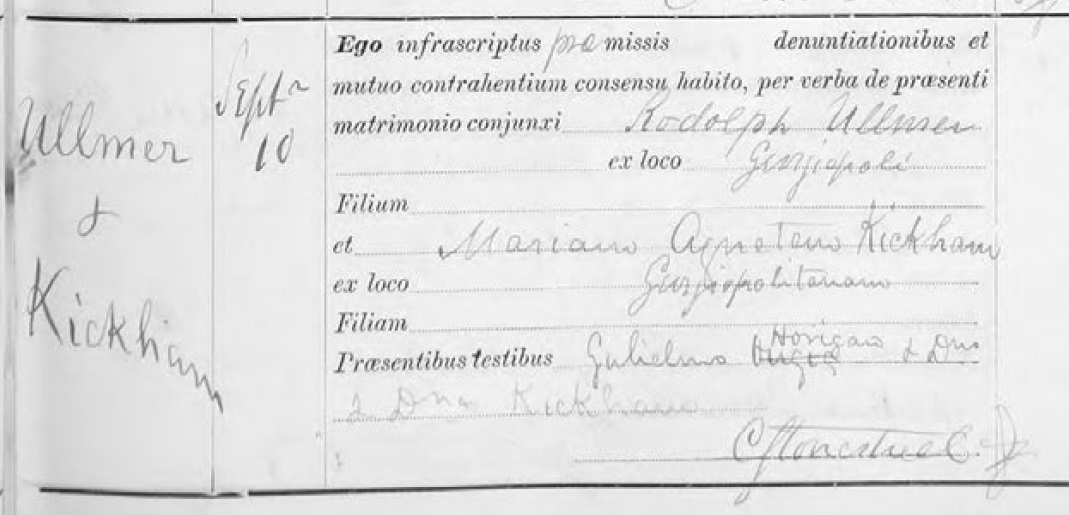 Ullmer
&
Kickham
Septr
10
Ego infrascriptus præmissis denuntiationibus et
mutuo contrahentium consensu habito, per verba de præsenti
matrimonio conjunxi Rodolph Ullmer
ex loco Georgiopoli
Filium
et Mariam Agnetem Kickham
ex loco Georgiopolitanam
Filiam
Præsentibus testibus Gulielmo Horigan & Dno
& Dna Kickham